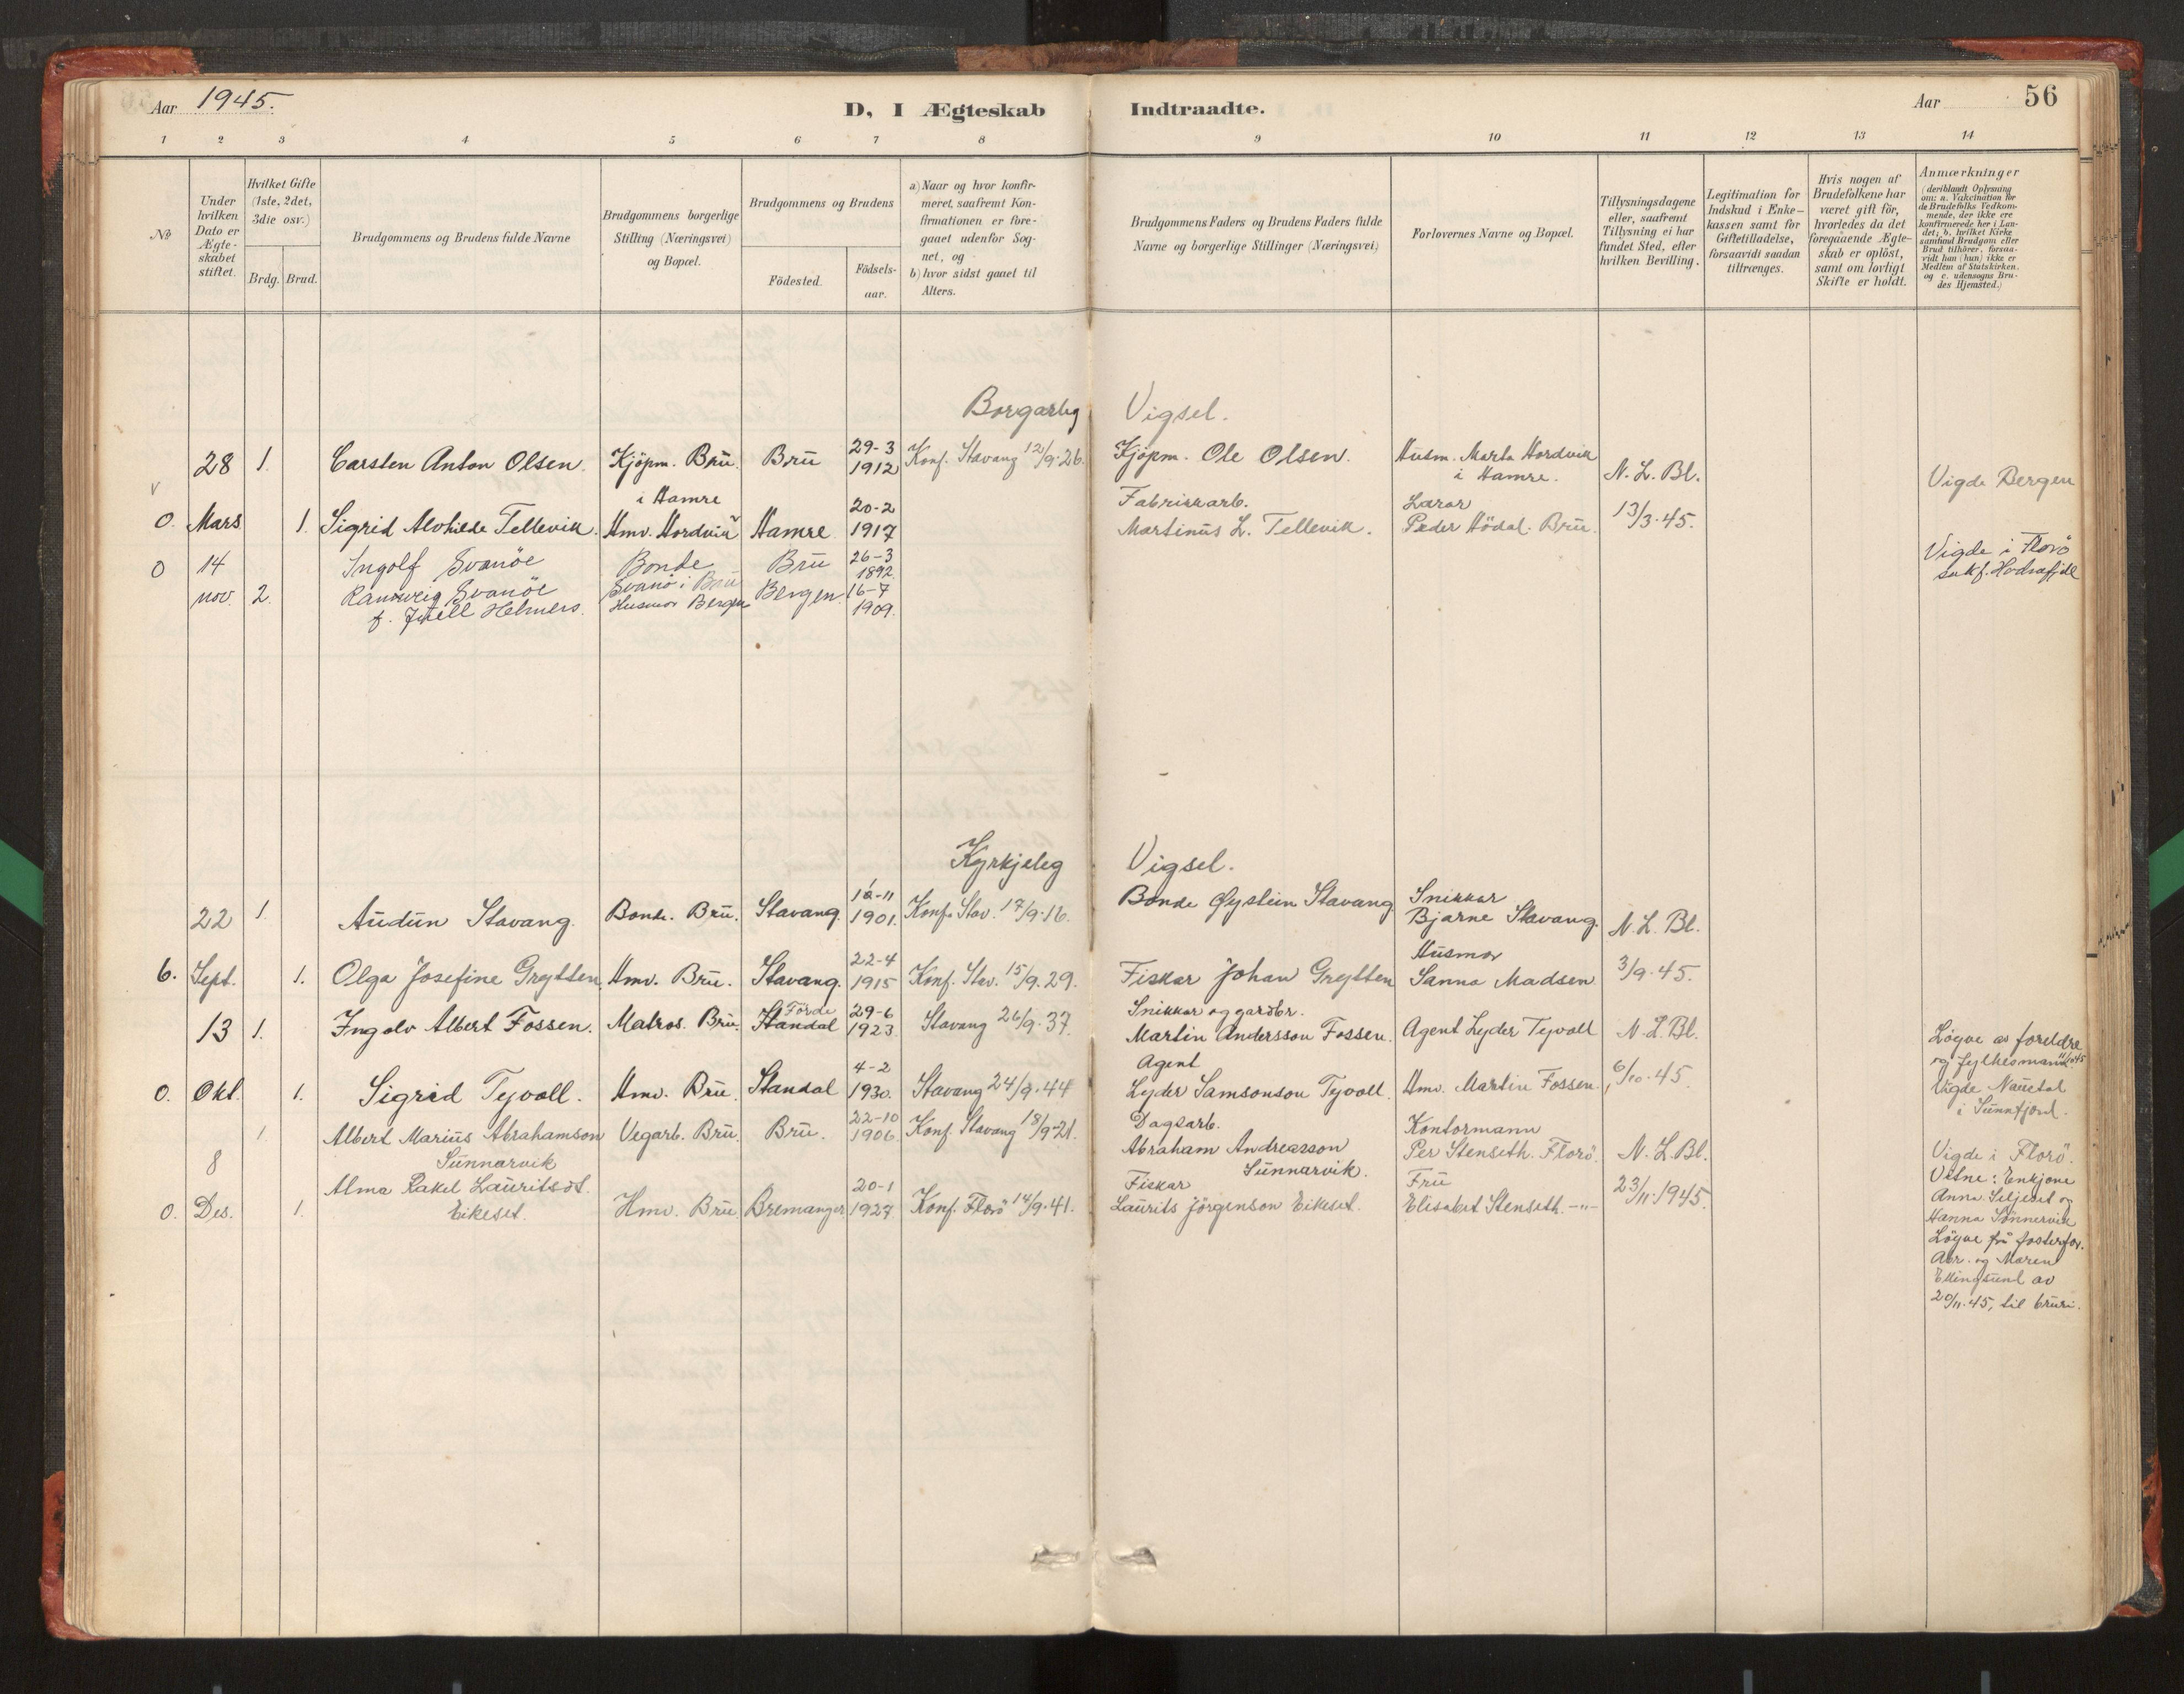 Aar 1945.
D, I Ægteskab Indtraadte.
Aar 56
1 2 3 4 5 6 7 8 9 10 11 12 13 14
No
Under hvilken Dato er Ægte-skabet stiftet.
Hvilket Gifte (1ste, 2det, 3die osv.)
Brdg. Brud.
Brudgommens og Brudens fulde Navne
Brudgommens borgerlige Stilling (Næringsvei) og Bopæl.
Brudgommens og Brudens
Fødested. Fødsels-aar.
a) Naar og hvor konfir-meret, saafremt Kon-firmationen er fore-gaaet udenfor Sog-net, og
b) hvor sidst gaaet til Alters.
Brudgommens Faders og Brudens Faders fulde Navne og borgerlige Stillinger (Næringsvei)
Forlovernes Navne og Bopæl.
Tillysningsdagene eller, saafremt Tillysning ei har fundet Sted, efter hvilken Bevilling.
Legitimation for Indskud i Enke-kassen samt for Giftetilladelse, forsaavidt saadan tiltrænges.
Hvis nogen af Brudefolkene har været gift før, hvorledes da det foregaaende Ægte-skab er opløst, samt om lovligt Skifte er holdt.
Anmærkninger (deriblandt Oplysning om: a. Vakcination for de Brudefolks Vedkom-mende, der ikke ere konfirmerede her i Lan-det; b. hvilket Kirke samfund Brudgom eller Brud tilhører, forsaa-vidt han (hun) ikke er Medlem af Statskirken, og c. udensogns Bru-des Hjemsted.)
Borgarleg Vigsel.
28 1. Carsten Anton Olsen. Kjöpm. Bru. Bru 29-3 1912 Konf. Stavang 12/9.26. Kjöpm. Ole Olsen. Husm. Marta Hordvik i Hamre. N. L. Bl. Vigde Bergen
v
0. Mars 1. Sigrid Alvhilde Tellevik. i Hamre Hmv. Hordvik Hamre 20-2 1917 Fabrikkarb. Martinus L. Tellevik. Lærar Peder Hödal. Bru. 13/3.45.
0 14 Ingolf Svanöe Bonde Svanö i Bru Bru 26-3 1892 Vigde i Florö
nov. 2. Rannveig Svanöe f. Helmers. Husmor Bergen Bergen 16-7 1909.
Kyrkjeleg Vigsel.
22 1. Audun Stavang. Bonde. Bru. Stavang. 1901. Konf. Stav. 17/9.16. Bonde Øystein Stavang Snikkar Bjarne Stavang. N. L. Bl.
6. Sept. 1. Olga Josefine Grytten Hmv. Bru. Stavang. 22-4 1915 Konf. Stav. 15/9.29. Fiskar Johan Grytten Husmor Sanna Madsen 3/9.45.
13 1. Ingolv Albert Fossen. Matros. Bru. Förde Standal 29-6 1923 Stavang 26/9.37. Snikkar og gardbr. Martin Andersson Fossen. Agent Lyder Tejvoll N. L. Bl. Löyve av foreldre og fylkesmann
0. Okt. 1. Sigrid Tejvoll. Hmv. Bru. Standal 4-2 1930. Stavang 24/9.44 Agent Lyder Samsonson Tejvoll. Hmv. Martin Fossen. 6/10.45. Vigde Naustdal i Sunnfjord.
1. Albert Marius Abrahamson Sunnarvik Vegarb. Bru. Bru. 22-10 1906. Konf. Stavang 18/9-21. Dagsarb. Abraham Andreasson Sunnarvik. Kontormann Per Stenseth. Florö. N. L. Bl. Vigde i Florö.
8
0. Des. 1. Alma Rakel Lauritsdt. Eikeset. Hmv. Bru Bremanger 20-1 1927 Konf. Florö 14/9.41. Fiskar Laurits Jörgenson Eikeset. Fru Elisabet Stenseth. -"- 23/11.1945.
Vitne: Enkjone
Anna Seljeset og
Hanna Sönnervik
Löyve frå fosterfor.
Abr. og Maren
Ellingsund av
20/11.45, til bruri.